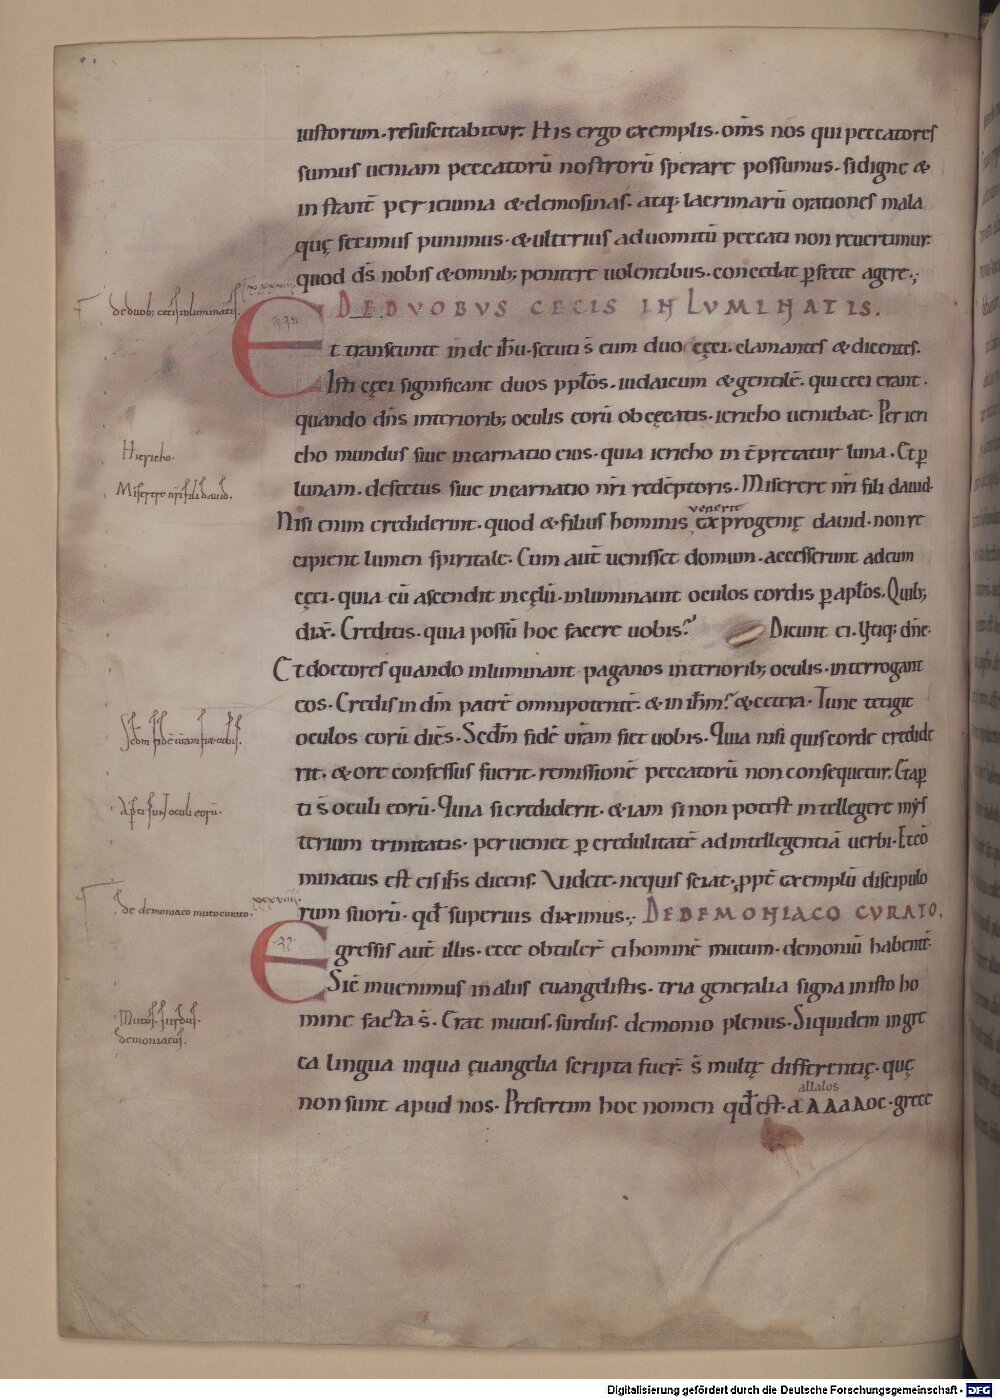 iustorum. resuscitabitur. His ergo exemplis. om̄s nos qui peccatores
sumus ueniam peccatorū nostrorū sperare possumus. si digne &
instant̄ per ieiunia & elemosinas. atq; lacrimarū orationes mala
quę fecimus punimus. & ulterius ad uomitū peccati non reuertimur.
quod d̄s nobis & omnib; penitere uolentibus. concedat ꝑfecte agere.;
de duob; cecis inluminatis
DE DUOBUS CECIS INLUMINATIS.
Et transeunte inde ih̄u. secuti s̄ eum duo cęci. clamantes & dicentes.
Isti cęci significant duos pp̄los. iudaicum & gentilē. qui ceci erant.
quando dn̄s interiorib; oculis eorū obcęcatis. iericho ueniebat. Per ieri
Hiericho.
cho mundus siue incarnatio eius. quia iericho int̄pretatur luna. Et ꝑ
Miserere nr̄i fili dauid.
lunam. defectus siue incarnatio nr̄i redēptoris. Miserere nr̄i fili dauid.
venerit
Nisi enim crediderint. quod & filius hominis ex progenię dauid. non re
cipient lumen spiritale. Cum aut̄ uenisset domum. accesserunt ad eum
cęci. quia cū ascendit in cęlū. inluminauit oculos cordis ꝑ apl̄os. Quib;
dix̄. Creditis. quia possū hoc facere uobis? Dicunt ei. Utiq; dn̄e.
Et doctores quando inluminant paganos interiorib; oculis. interrogant
eos. Credis in dm̄ patrē omnipotentē. & in ih̄m? & cetera. Tunc tetigit
Scdm̄ fidē uram fiet uobis.
oculos eorū diēs. Scdm̄ fidē ur̄am fiet uobis. Quia nisi quis corde credide
rit. & ore confessus fuerit. remissionē peccatorū non consequetur. Et aꝑ
Aꝑti sunt oculi eorū.
ti s̄ oculi eorū. Quia si crediderit. & iam si non potest intellegere mys
terium trinitatis. perueniet ꝑ credulitatē ad intellegentiā uerbi. Et cō
minatus est eis ih̄s dicens. Uidete. ne quis sciat. ꝓpt̄ exemplū discipulo
de demoniaco muto curato.
xxxviiii
rum suorū. qd̄ superius diximus.; DE DEMONIACO CURATO.
Egressis aut̄ illis. ecce obtuler̄ ei hominē mutum. demoniū habent̄.
Sic̄ inuenimus in aliis euangelistis. tria generalia signa in isto ho
Mutus. surdus.
demoniacus.
mine facta s̄. Erat mutus. surdus. demonio plenus. Siquidem in gre
ca lingua in qua ęuangelia scripta fuer̄. s̄ multę differentię. quę
allalos
non sunt apud nos. Preserim hoc nomen qd̄ est. aΛΛaΛoc. grece
Digitalisierung gefördert durch die Deutsche Forschungsgemeinschaft - DFG